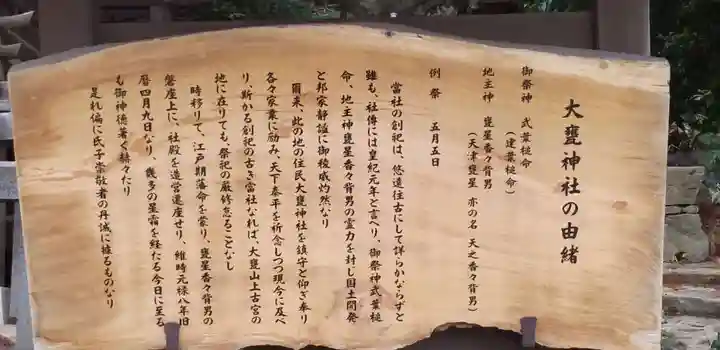 大甕神社の由緒
御祭神 武葉槌命
(建葉槌命)
地主神 甕星香々背男
(天津甕星 亦の名 天之香々背男)
例祭 五月五日
當社の創祀は、悠遠往古にして詳らかならずと
雖も、社傳には皇紀元年と言へり、御祭神武葉槌
命、地主神甕星香々背男の霊力を封じ国土開発
と邦家静謐に御稜威灼然なり
爾来、此の地の住民大甕神社を鎮守と仰ぎ奉り
各々家業に励み、天下泰平を祈念しつつ現今に及べ
り、斯かる創祀の古き當社なれば、大甕山上古宮の
地に在りても、祭祀の厳修怠ることなし
時移りて、江戸期藩命を蒙り、甕星香々背男の
磐座上に、社殿を造営遷座せり、維時元禄八年旧
暦四月九日なり、幾多の星霜を経たる今日に至る
も御神徳著く赫々たり
是れ偏に氏子崇敬者の丹誠に據るものなり